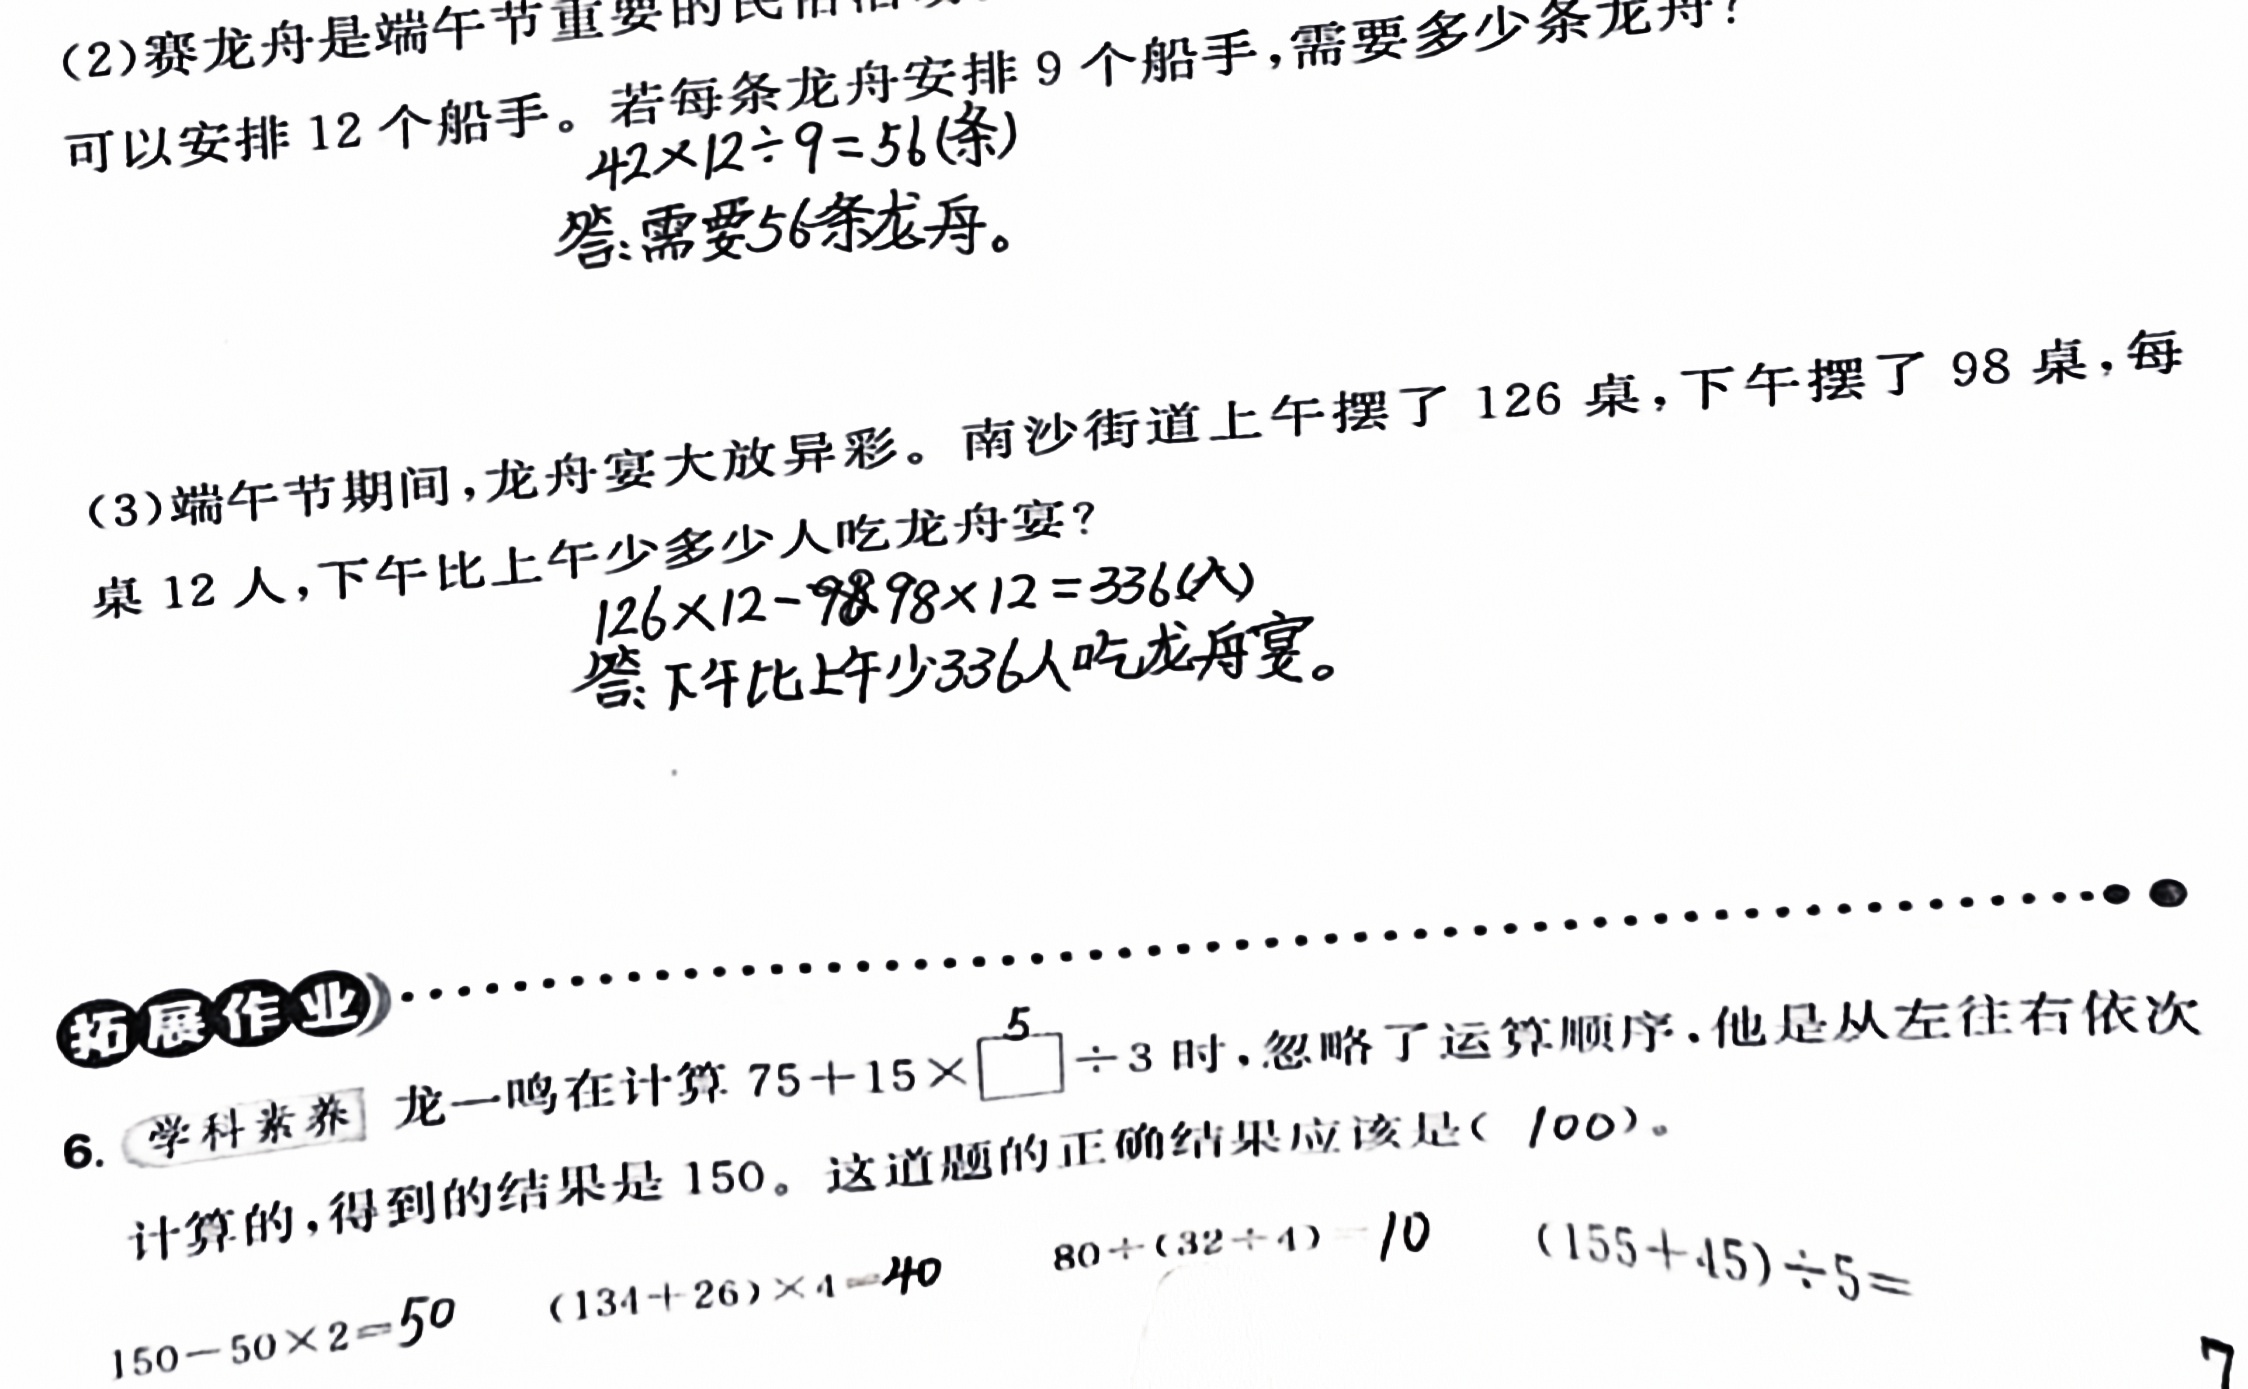 (2)赛龙舟是端午节重要的民俗活
可以安排 12 个船手。若每条龙舟安排 9 个船手,需要多少条龙舟?
42×12÷9=56(条)
答:需要56条龙舟。
(3)端午节期间,龙舟宴大放异彩。南沙街道上午摆了 126 桌,下午摆了 98 桌,每
桌 12 人,下午比上午少多少人吃龙舟宴?
126×12-98×12=336(人)
答:下午比上午少336人吃龙舟宴。
拓展作业
6. 学科素养 龙一鸣在计算 75+15×5÷3 时,忽略了运算顺序,他是从左往右依次
计算的,得到的结果是 150。这道题的正确结果应该是( 100 )。
150-50×2=50 (134+26)×4=40 80÷(32÷4)=10 (155+45)÷5=
7